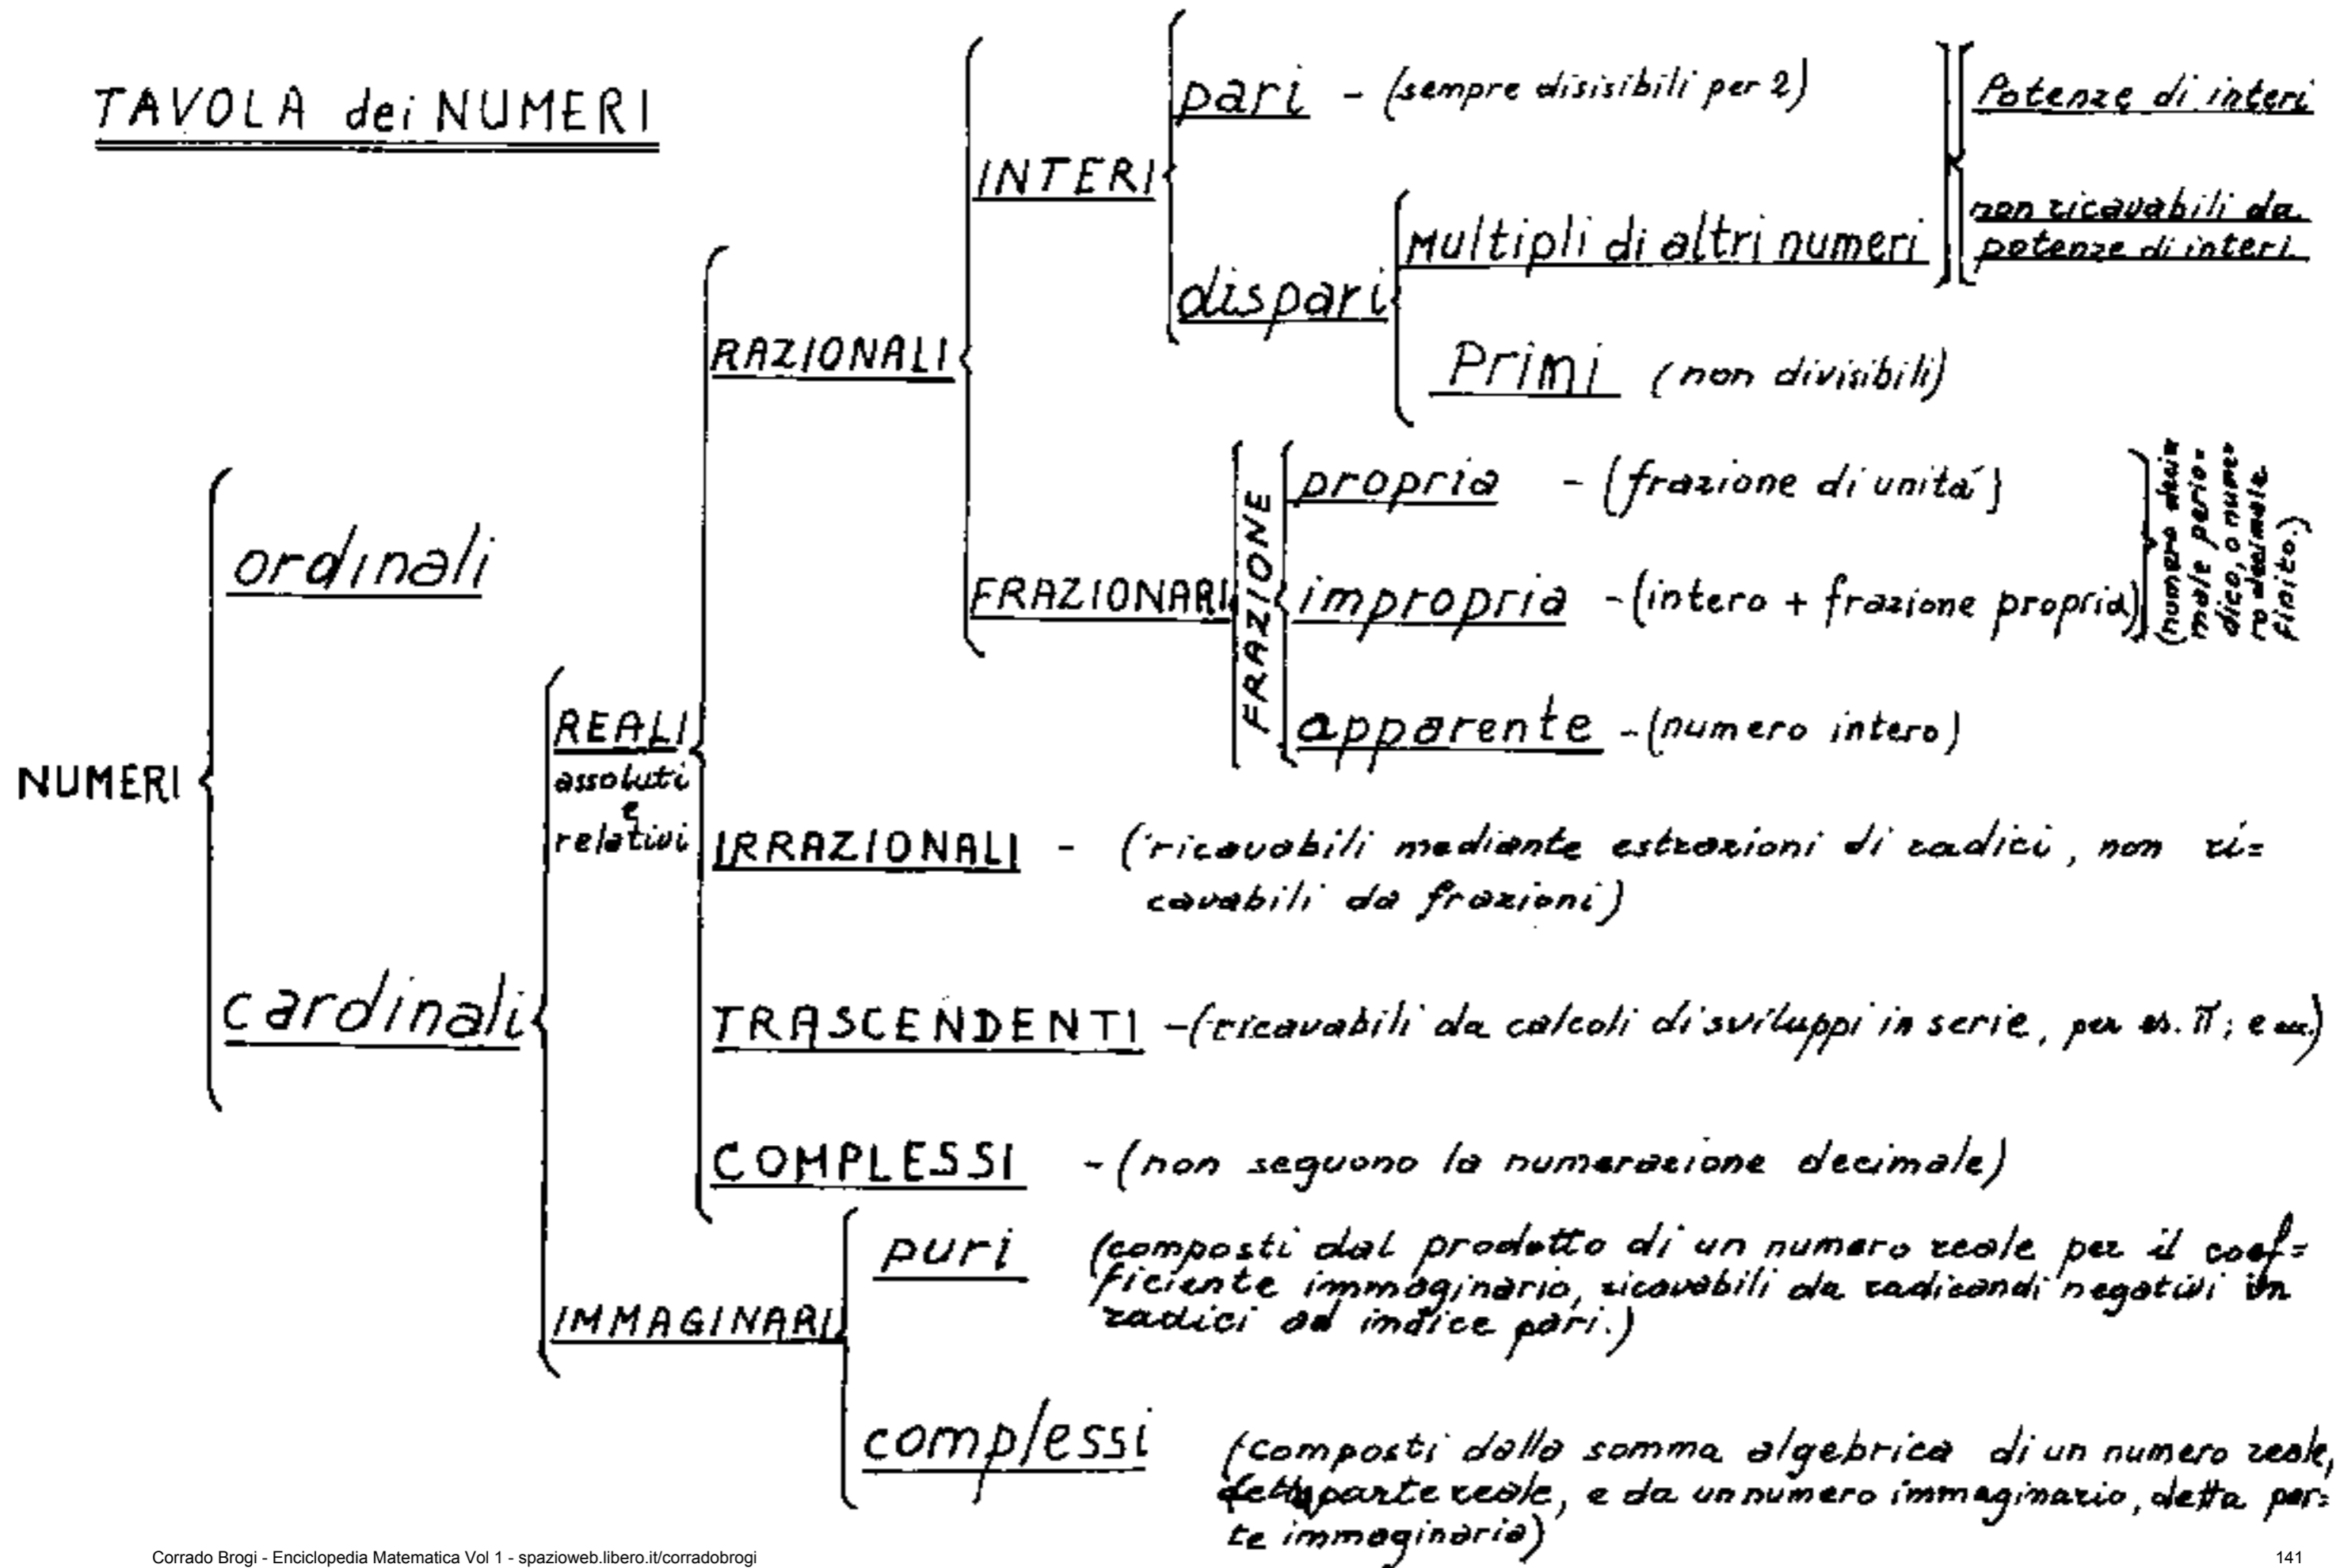 TAVOLA dei NUMERI
NUMERI
ordinali
cardinali
REALI
assoluti
e
relativi
RAZIONALI
INTERI
pari - (sempre disisibili per 2)
dispari
Multipli di altri numeri
Primi (non divisibili)
Potenze di interi
non ricavabili da
potenze di interi
FRAZIONARI
FRAZIONE
propria - (frazione di unitá)
impropria - (intero + frazione propria)
apparente - (numero intero)
(numero deci=
male perio=
dico, o nume=
ro decimale
finito.)
IRRAZIONALI - (ricavabili mediante estrazioni di radici, non ri=
cavabili da frazioni)
TRASCENDENTI - (ricavabili da calcoli di sviluppi in serie, per es. π; e ecc.)
COMPLESSI - (non seguono la numerazione decimale)
IMMAGINARI
puri (composti dal prodotto di un numero reale per il coef=
ficiente immaginario, ricavabili da radicandi negativi in
radici ad indice pari.)
complessi (composti dalla somma algebrica di un numero reale,
detta parte reale, e da un numero immaginario, detta par=
te immaginaria)
Corrado Brogi - Enciclopedia Matematica Vol 1 - spazioweb.libero.it/corradobrogi
141